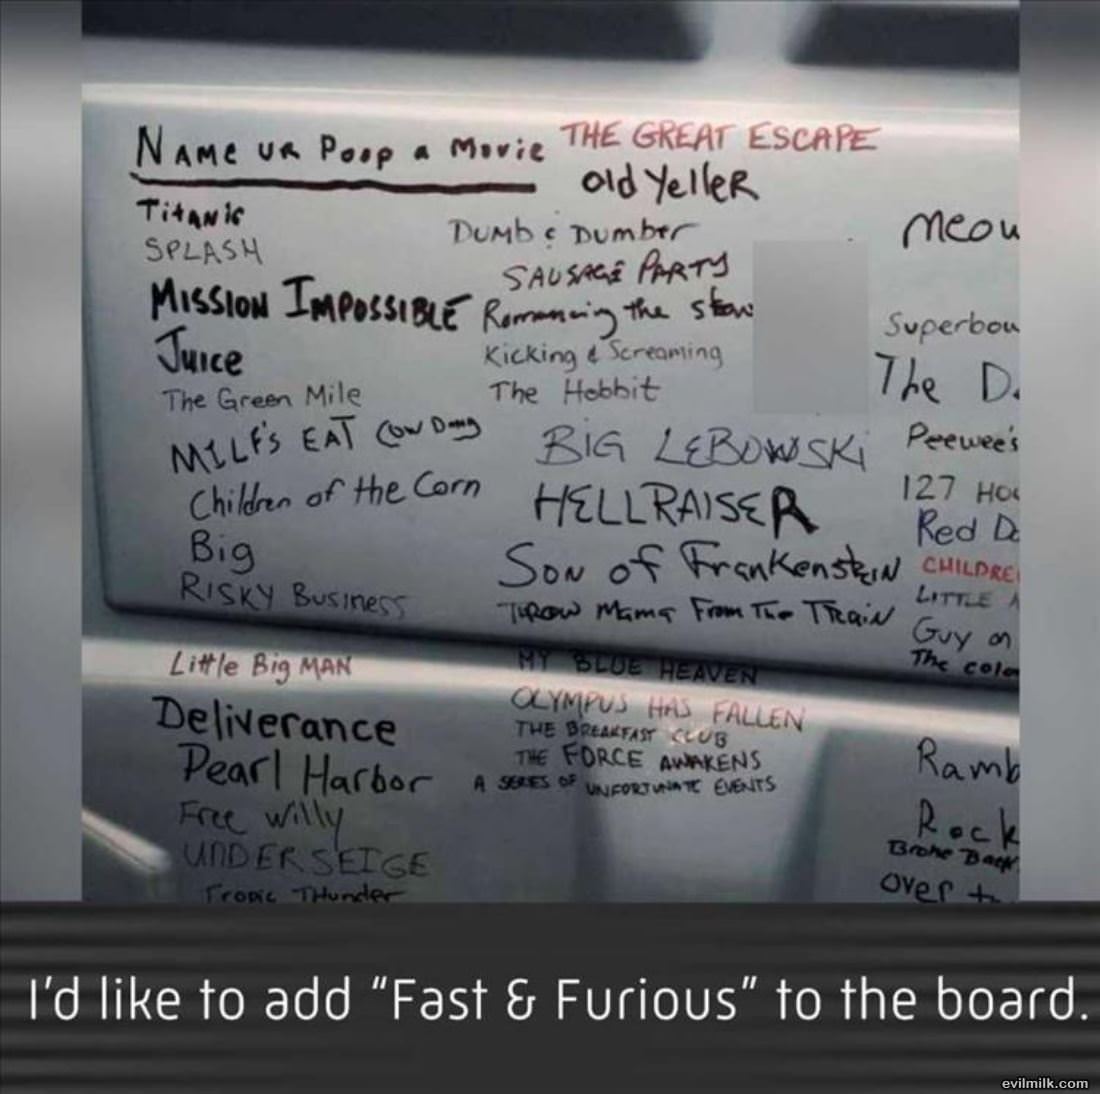 NAME UR POOP a Movie
THE GREAT ESCAPE
Old YelleR
TiTANic
SPLASH
MISSION IMPOSSIBLE
Juice
The Green Mile
MILF's EAT COW Dung
Children of the Corn
Big
RISKY Business
Little Big MAN
Deliverance
Pearl Harbor
Free Willy
UNDER SEIGE
Tropic THunder
DUMb & DUMber
SAUSAGE PARTY
Romancing the Stone
Kicking & Screaming
The Hobbit
BIG LEBOWSKi
HELLRAISER
SON OF FrankenstEIN
THROW MaMa From The TRaiN
MY BLUE HEAVEN
OLYMPUS HAS FALLEN
THE BREAKFAST CLUB
THE FORCE AWAKENS
A SERIES OF UNFORTUNATE EVENTS
meow
Superbou
The D
Peewee's
127 Hou
Red D
CHILDRE
LITTLE
Guy on
The color
Ramb
Rock
Broke Back
over t
I'd like to add "Fast & Furious" to the board.
evilmilk.com